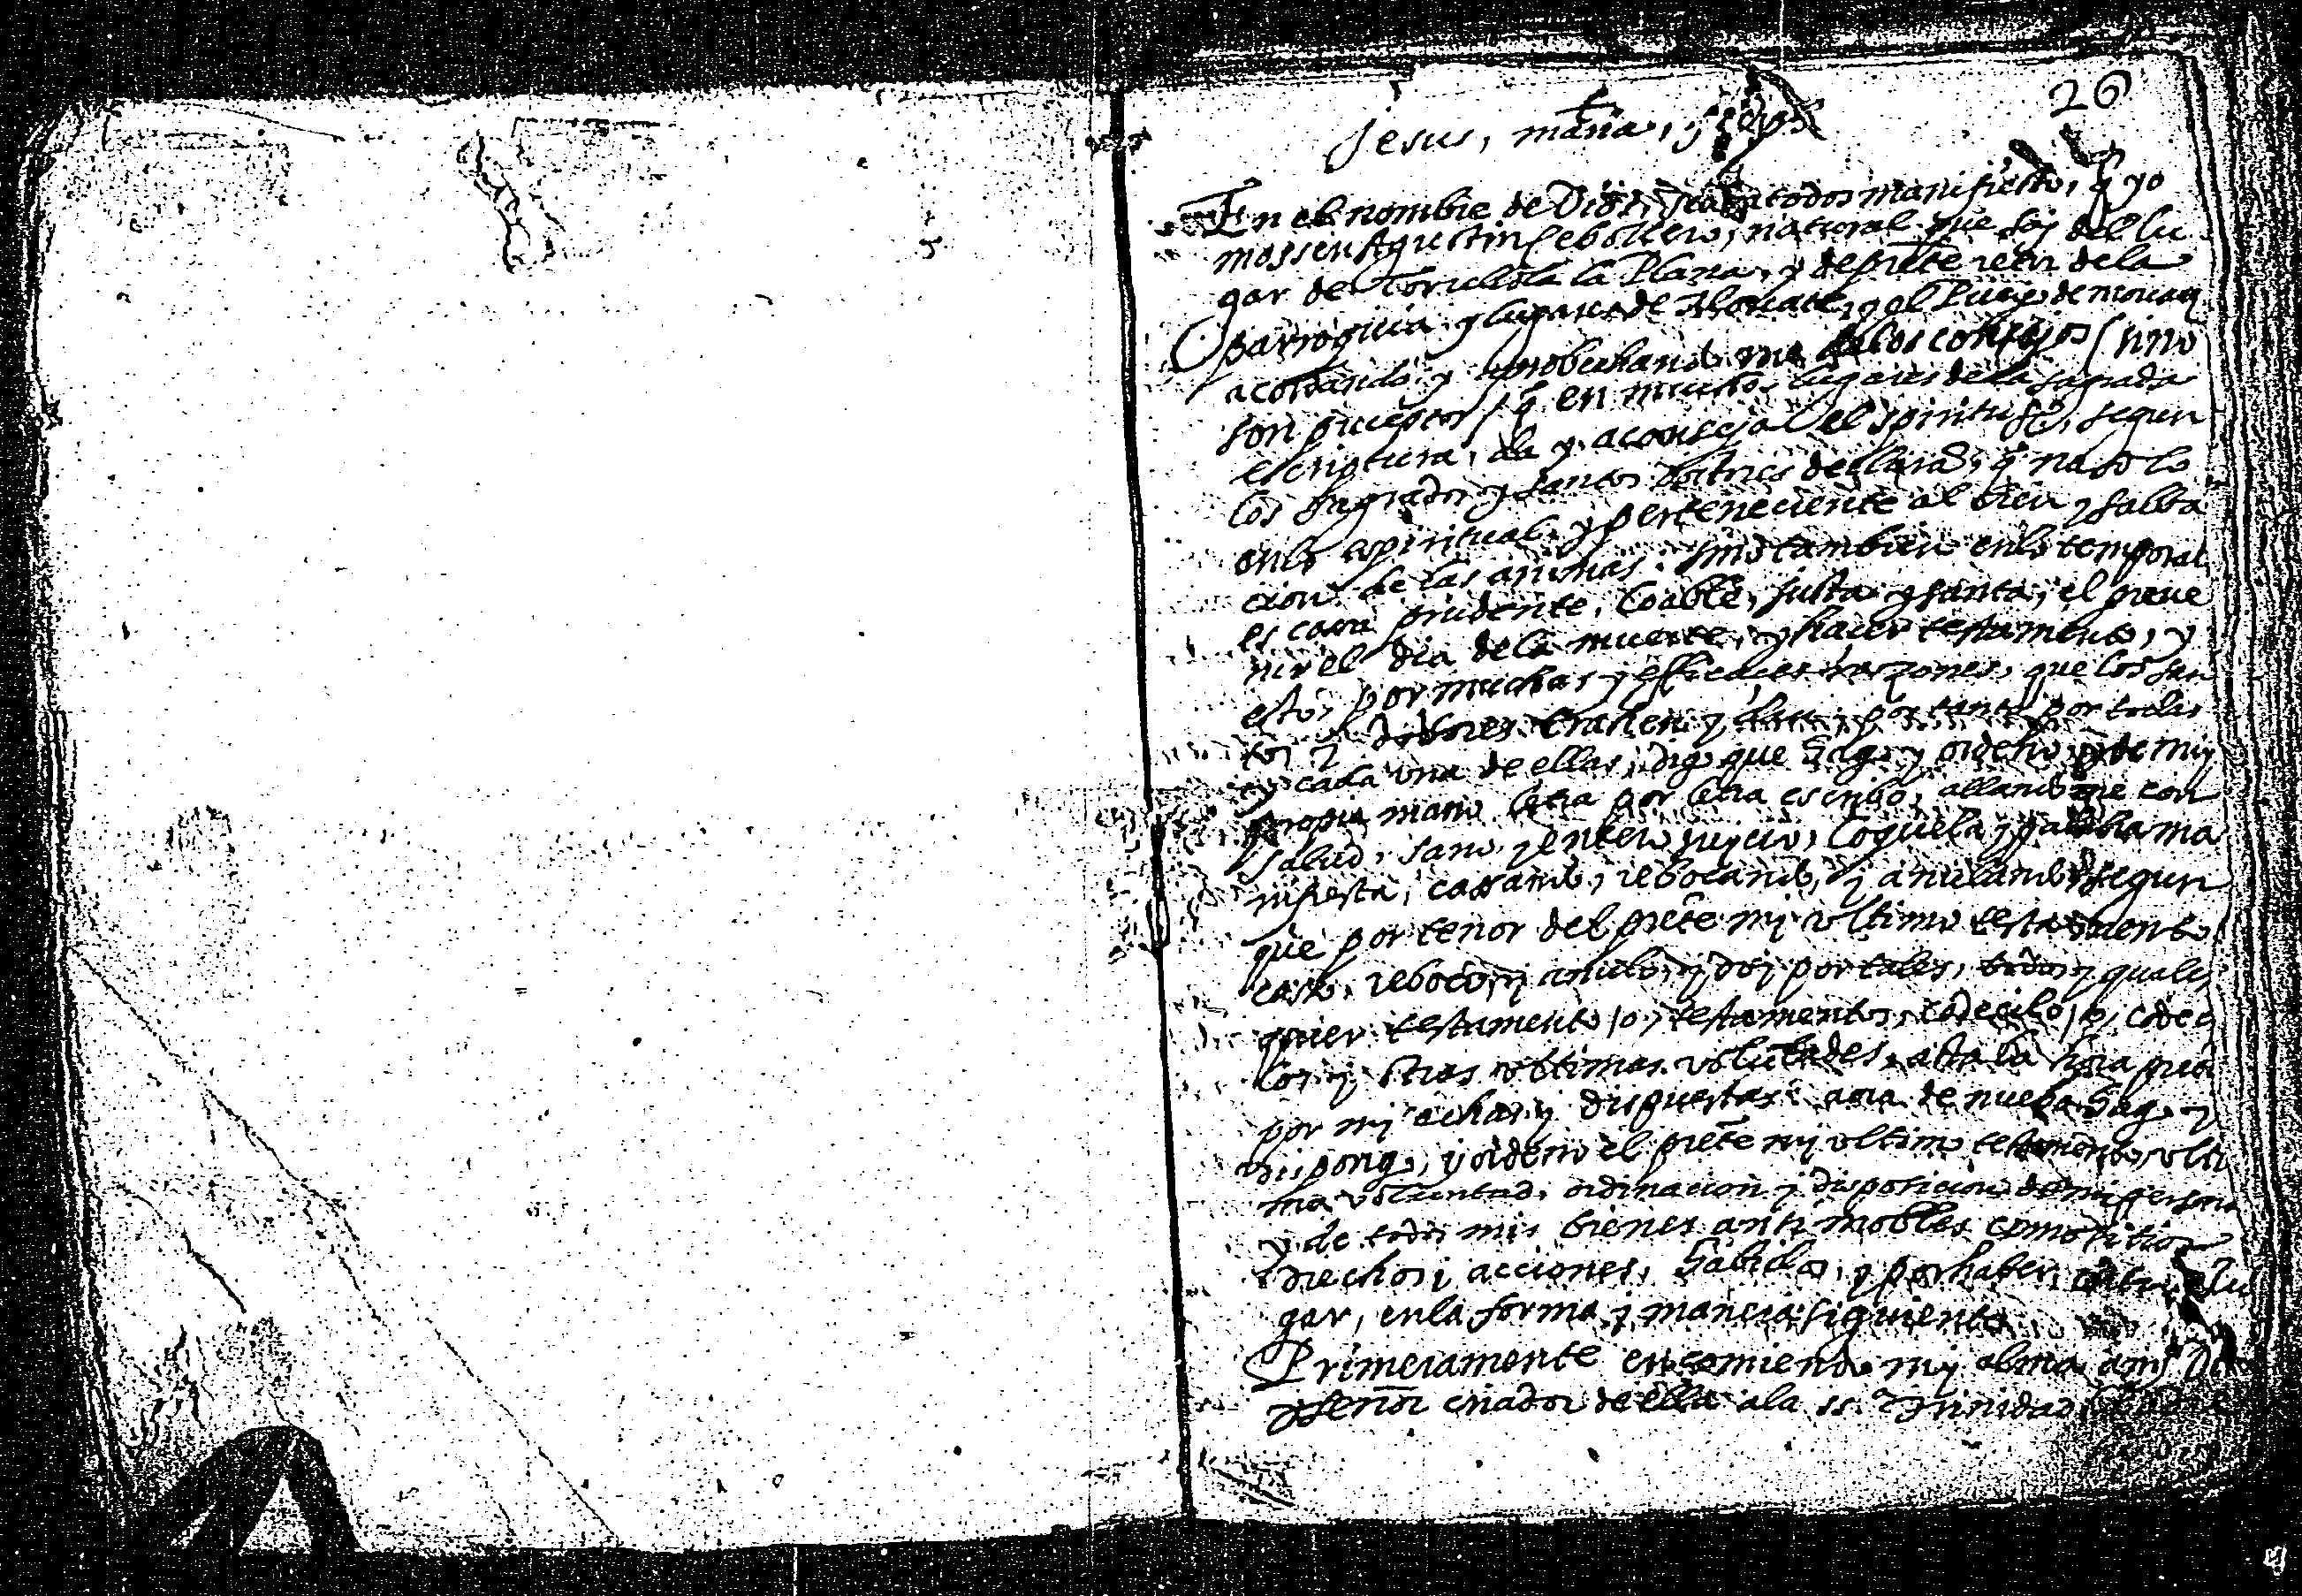 26
Jesus, maria, y
En el nombre de Dios, sea a todos manifiesto, q yo
mossen Agustin Cebollero, natural que soy del lu
gar de la Plana, y de pnte retor de la
parroquia y lugares de y el Pueyo de
acordando y aprobechando me de los consejos (sino
son preceptos) q en muchos lugares de la sagrada
escriptura, da y aconseja el spiritu sto, segun
los sagrados y santos dotores declarã, q no solo
en lo espiritual, y perteneciente al bien y salba
cion de las animas. sino tambien en lo temporal
es cosa prudente, loable, justa y santa, el preue
nir el dia de la muerte, y hacer testamento, y
esto, por muchas y efficaces razones, que los san
tos y dotores trahen y dan, por tanto por todas
y cada una de ellas, digo que hago y ordeno y de mi
propia mano letra por letra escribo, allandome con
salud, sano y entero juycio, loquela y palabra ma
nifiesta, cassando, rebocando, y anulando segun
que por tenor del pnte mi vltimo testamento
casso, reboco, y anulo, y doy por tales, todos y quales
quier testamento, o, testamentos, codecilo, o, codeci
los, y otras vltimas volũtades, asta la hora pnte
por mi echas y dispuestas: aora de nuebo hago y
dispongo, y ordeno el pnte mi vltimo testamento, vlti
ma voluntad, ordinacion y disposicion de mi persona
y de todos mis bienes anti mobles como sitios
drechos, y acciones, habidos, y por haber, en todo lu
gar, en la forma y manera siguiente
Primeramente encomiendo mi alma a mi Dios
y señor criador de ella a la ss. Trinidad